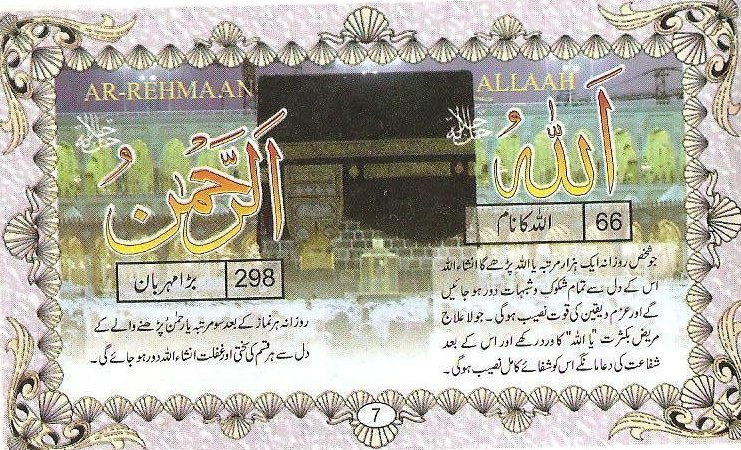 ALLAAH
جل جلالہ
اَللہُ
66
اللہ کا نام
جو شخص روزانہ ایک ہزار مرتبہ یا اللہ پڑھے گا انشاء اللہ
اس کے دل سے تمام شکوک و شبہات دور ہو جائیں
گے اور عزم و یقین کی قوت نصیب ہوگی ۔ جو لا علاج
مریض بکثرت "یا اللہ" کا ورد رکھے اور اس کے بعد
شفاعت کی دعا مانگے اس کو شفائے کامل نصیب ہوگی ۔
AR-REHMAAN
جل جلالہ
اَلرَّحْمٰنُ
298
بڑا مہربان
روزانہ ہر نماز کے بعد سو مرتبہ یا رحمٰنُ پڑھنے والے کے
دل سے ہر قسم کی سختی اور غفلت انشاء اللہ دور ہو جائے گی ۔
7